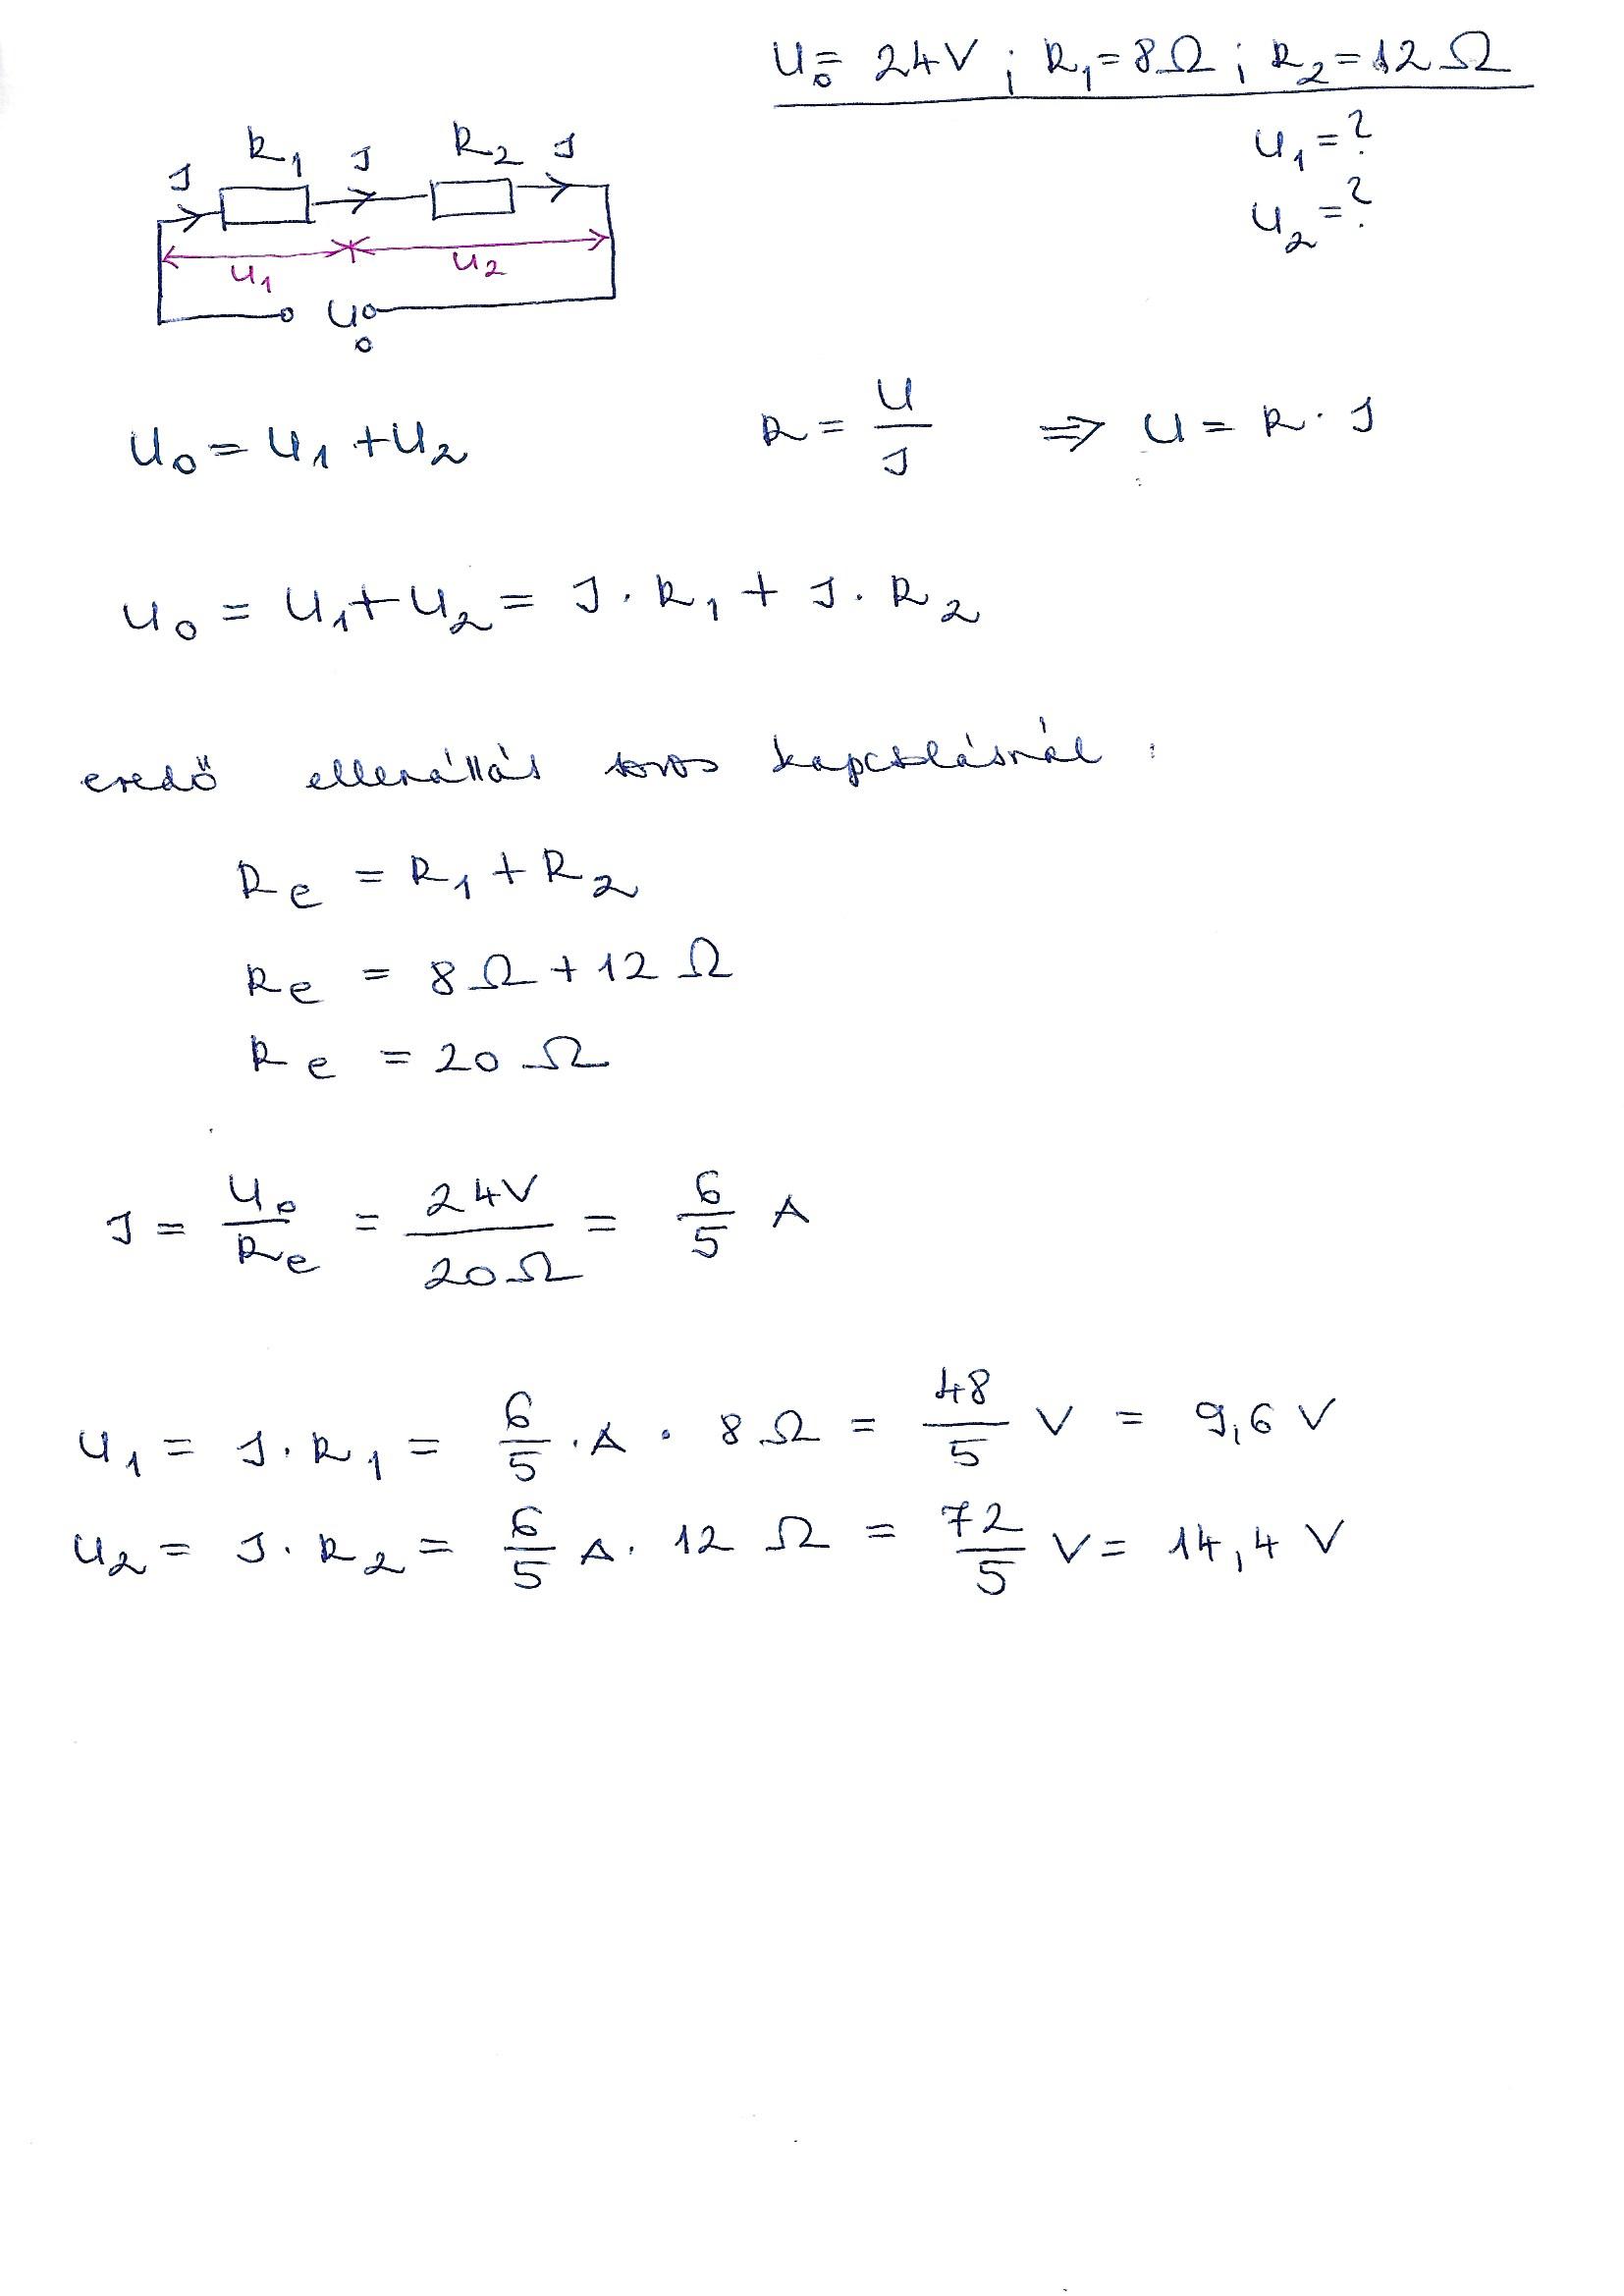 U₀ = 24V ; R₁ = 8Ω ; R₂ = 12Ω
U₁ = ?
U₂ = ?
R₁ R₂
I I I
U₁ U₂
U₀
U₀ = U₁ + U₂
R = U/I ⇒ U = R · I
U₀ = U₁ + U₂ = I · R₁ + I · R₂
eredő ellenállás soros kapcsolásnál :
Rₑ = R₁ + R₂
Rₑ = 8 Ω + 12 Ω
Rₑ = 20 Ω
I = U₀/Rₑ = 24V/20Ω = 6/5 A
U₁ = I · R₁ = 6/5 · A · 8 Ω = 48/5 V = 9,6 V
U₂ = I · R₂ = 6/5 A · 12 Ω = 72/5 V = 14,4 V